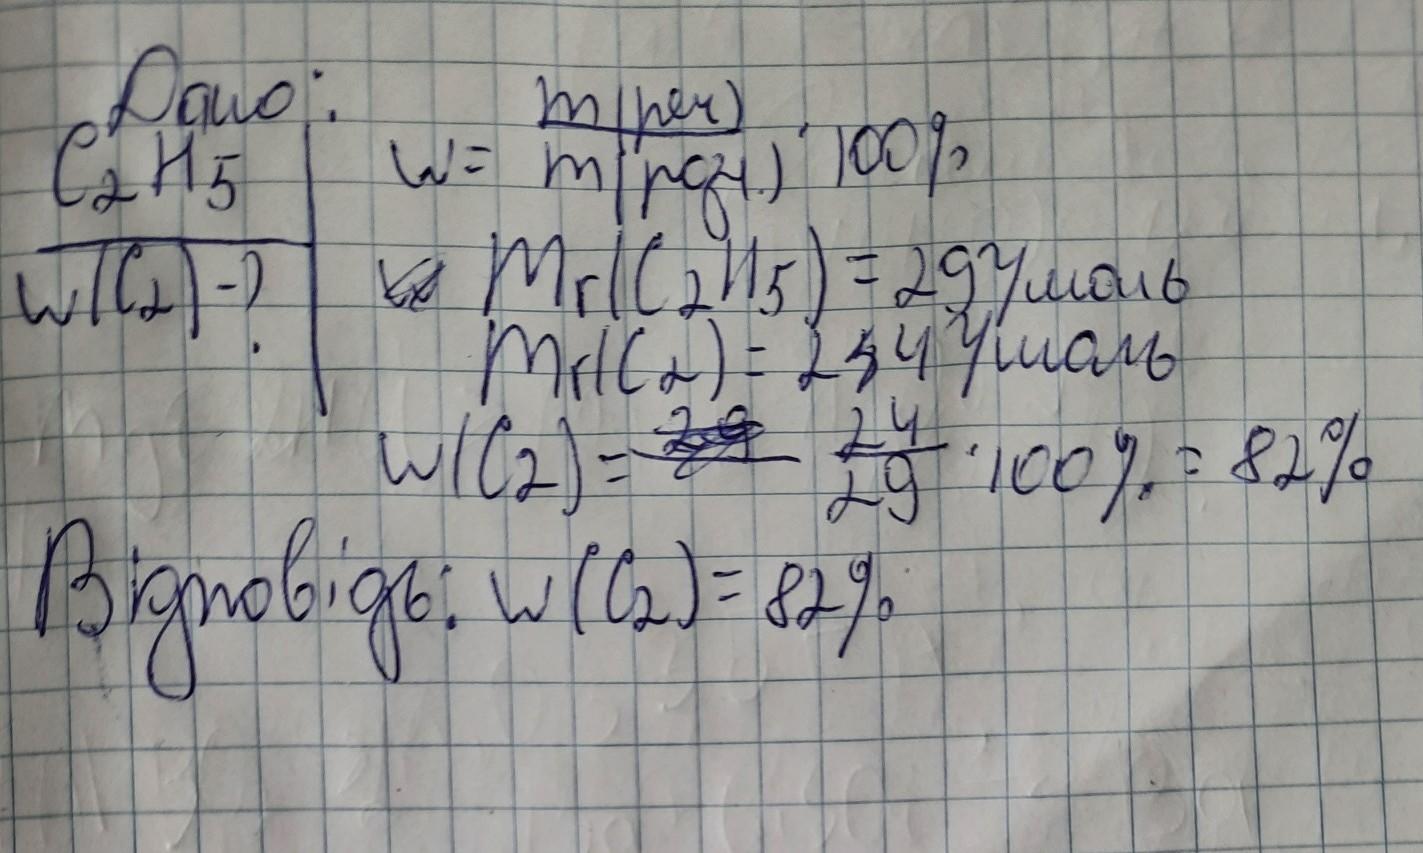 Дано:
C₂H₅
W(C₂) - ?
W = m(реч) / m(розч.) · 100%
Mr(C₂H₅) = 29 г/моль
Mr(C₂) = 24 г/моль
W(C₂) = 24/29 · 100% = 82%
Відповідь: W(C₂) = 82%